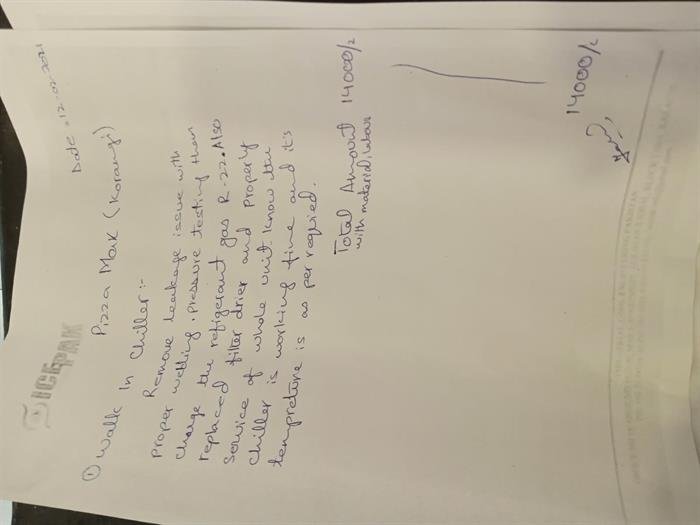 ICEPAK
Date: 12-02-2021
Pizza Mark (Korangi)
① Walk In Chiller:-
Remove leakage issue with
proper welding. Pressure testing then
charge the refigerant gas R-22. Also
replaced filter drier and properly
service of whole unit. Know the
chiller is working fine and it's
tempreture is as per requied.
Total Amount 14000/=
with material, labour
14000/=